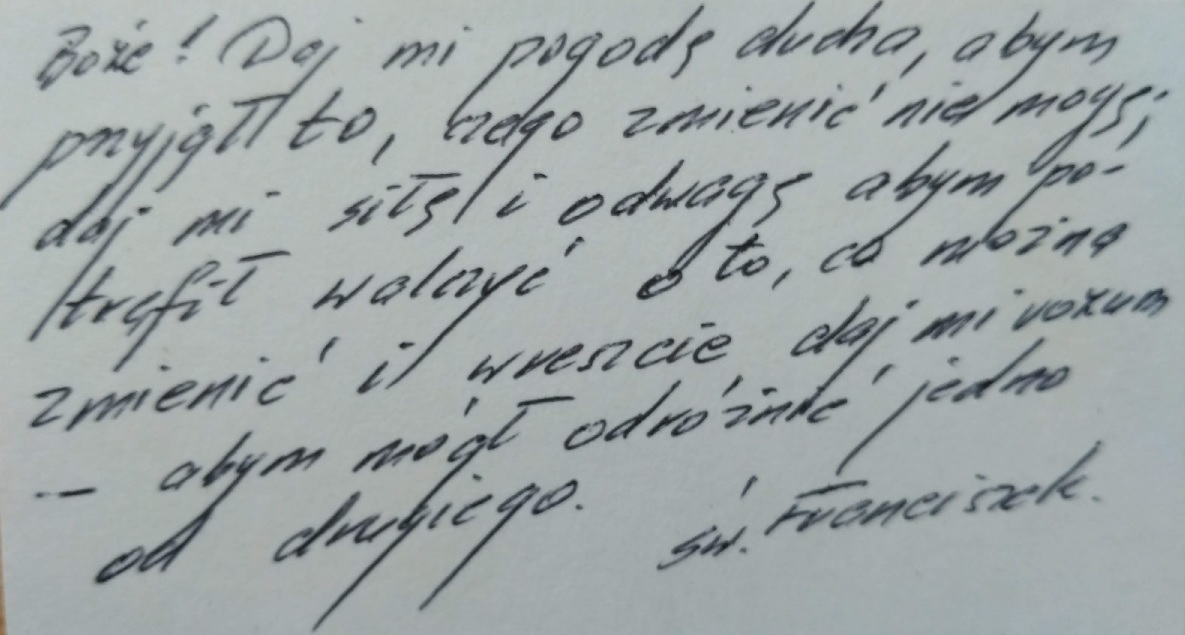 Boże! Daj mi pogodę ducha, abym
przyjął to, czego zmienić nie mogę;
daj mi siłę i odwagę abym po-
trafił walczyć o to, co można
zmienić i wreszcie daj mi rozum
— abym mógł odróżnić jedno
od drugiego.
św. Franciszek.